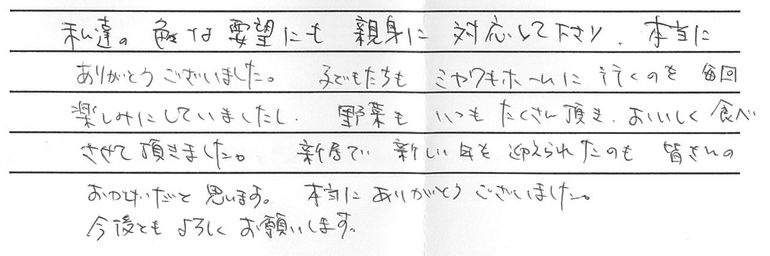 私達の色々な要望にも 親身に 対応して下さり、本当に
ありがとうございました。 子どもたちも ミヤワキホームに行くのを 毎回
楽しみにしていましたし、 野菜も いつも たくさん頂き、おいしく食べ
させて頂きました。 新居で 新しい年を 迎えられたのも 皆さんの
おかげだと思います。 本当にありがとうございました。
今後とも よろしく お願いします。